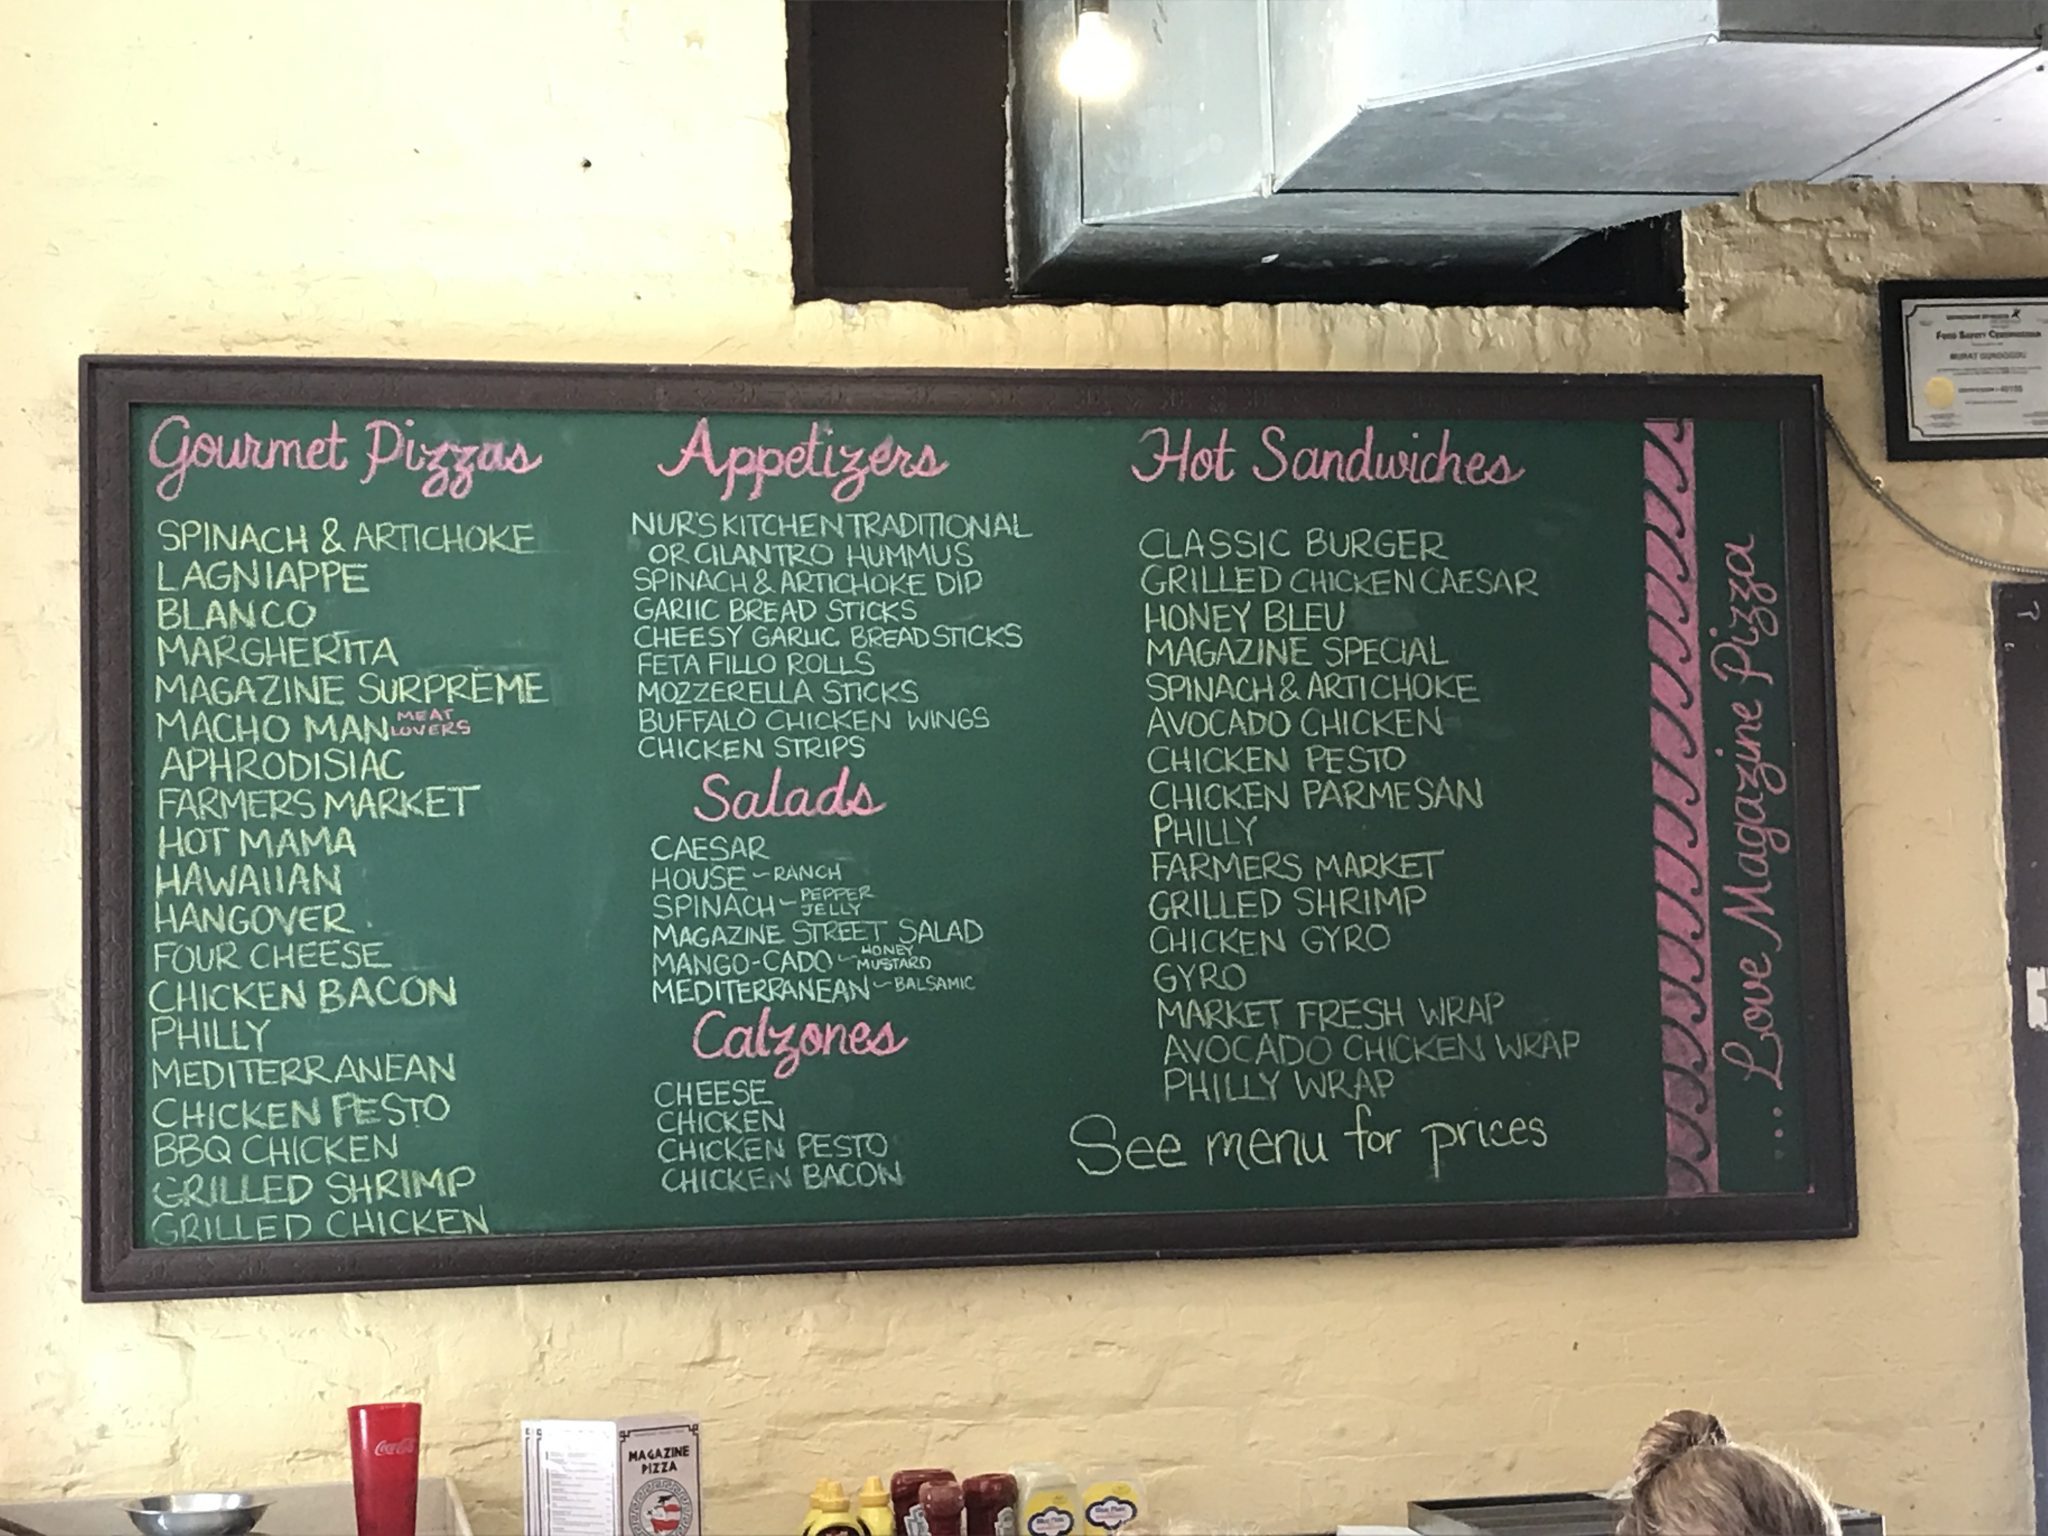 Gourmet Pizzas
SPINACH & ARTICHOKE
LAGNIAPPE
BLANCO
MARGHERITA
MAGAZINE SURPREME
MACHO MAN MEAT LOVERS
APHRODISIAC
FARMERS MARKET
HOT MAMA
HAWAIIAN
HANGOVER
FOUR CHEESE
CHICKEN BACON
PHILLY
MEDITERRANEAN
CHICKEN PESTO
BBQ CHICKEN
GRILLED SHRIMP
GRILLED CHICKEN
Appetizers
NUR'S KITCHEN TRADITIONAL
OR CILANTRO HUMMUS
SPINACH & ARTICHOKE DIP
GARLIC BREAD STICKS
CHEESY GARLIC BREADSTICKS
FETA FILLO ROLLS
MOZZERELLA STICKS
BUFFALO CHICKEN WINGS
CHICKEN STRIPS
Salads
CAESAR
HOUSE ~ RANCH
SPINACH ~ PEPPER JELLY
MAGAZINE STREET SALAD
MANGO-CADO ~ HONEY MUSTARD
MEDITERRANEAN ~ BALSAMIC
Calzones
CHEESE
CHICKEN
CHICKEN PESTO
CHICKEN BACON
Hot Sandwiches
CLASSIC BURGER
GRILLED CHICKEN CAESAR
HONEY BLEU
MAGAZINE SPECIAL
SPINACH & ARTICHOKE
AVOCADO CHICKEN
CHICKEN PESTO
CHICKEN PARMESAN
PHILLY
FARMERS MARKET
GRILLED SHRIMP
CHICKEN GYRO
GYRO
MARKET FRESH WRAP
AVOCADO CHICKEN WRAP
PHILLY WRAP
See menu for prices
....Love Magazine Pizza
Food Safety Certification
Coca-Cola
MAGAZINE
PIZZA
Blue Plate
Blue Plate